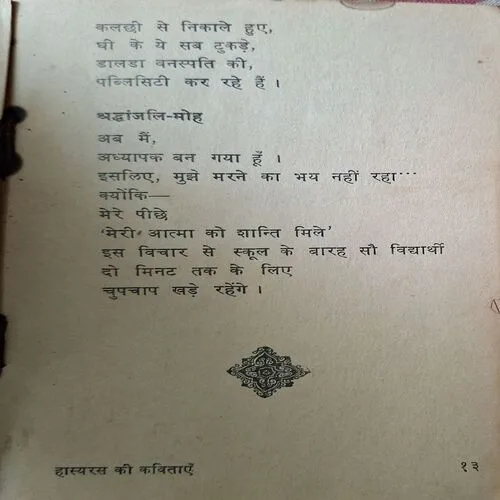 कलछी से निकाले हुए,
घी के ये सब टुकड़े,
डालडा वनस्पति की,
पब्लिसिटी कर रहे हैं ।
श्रद्धांजलि-मोह
अब मैं,
अध्यापक बन गया हूँ ।
इसलिए, मुझे मरने का भय नहीं रहा···
क्योंकि—
मेरे पीछे
‘मेरी आत्मा को शान्ति मिले’
इस विचार से स्कूल के बारह सौ विद्यार्थी
दो मिनट तक के लिए
चुपचाप खड़े रहेंगे ।
हास्यरस की कविताएँ
१३